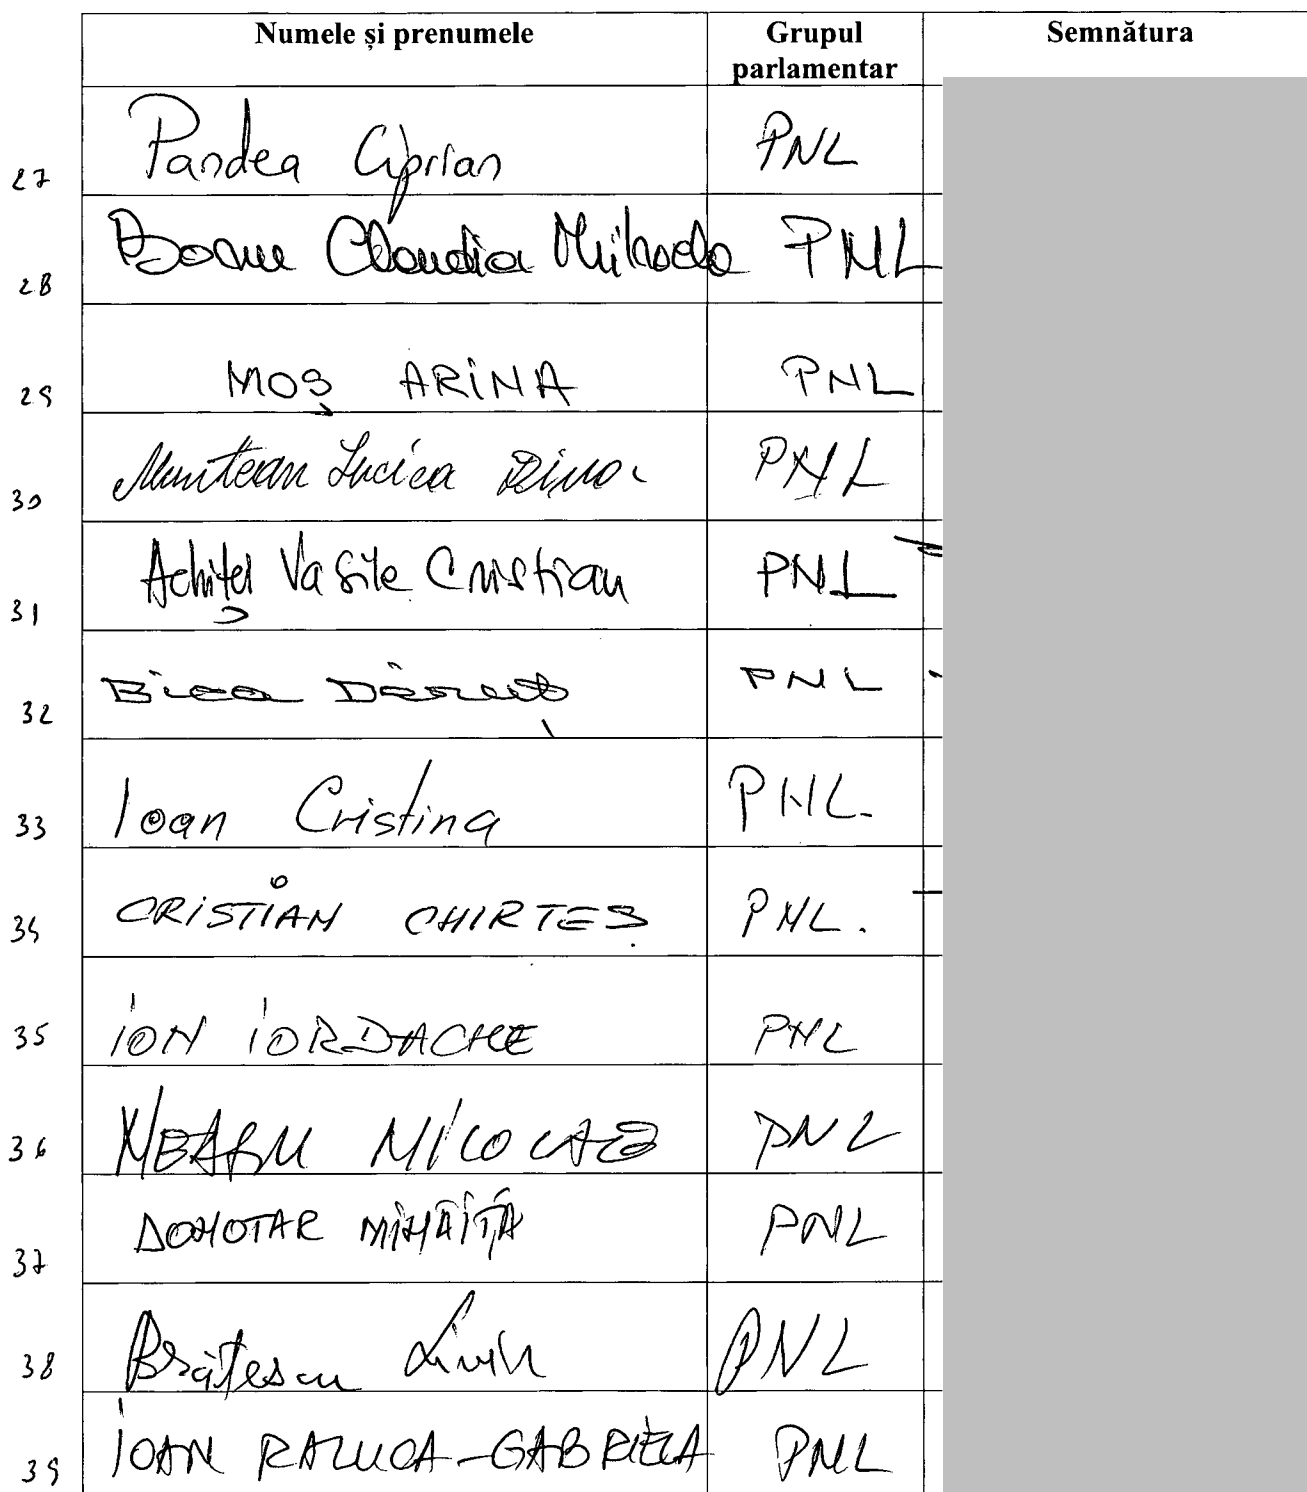 Numele și prenumele Grupul parlamentar Semnătura
27 Pandea Ciprian PNL
28 Boghiu Claudia Mihaela PNL
29 MOȘ ARINA PNL
30 Muntean Lucica Dina PNL
31 Achiței Vasile Cristian PNL
32 Bica Dănuț PNL
33 Ioan Cristina PNL.
34 CRISTIAN CHIRTEȘ PNL.
35 ION IORDACHE PNL
36 NEAGU NICOLAE PNL
37 DOHOTAR MIHĂIȚĂ PNL
38 Brătescu Liviu PNL
39 IOAN RALUCA-GABRIELA PNL